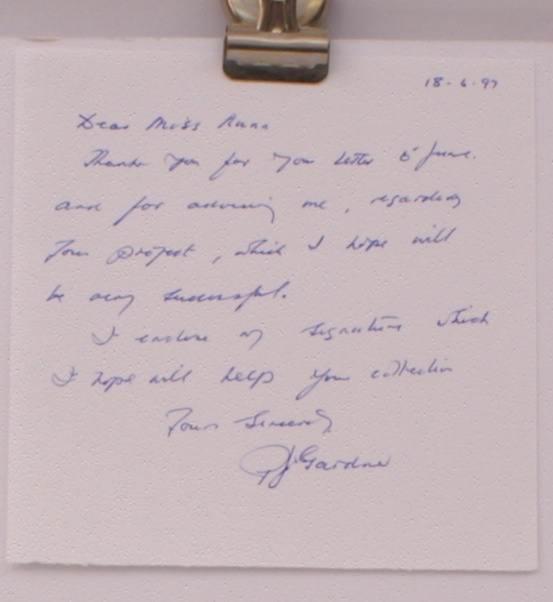 18-6-97
Dear Miss
Thank you for your letter 5 June.
and for advising me, regarding
your project, which I hope will
be very successful.
I enclose my signature which
I hope will help your collection
Yours Sincerely
Gardner